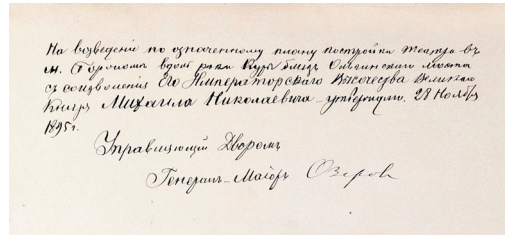 На возведенiе по означенному плану постройки театра въ
м. Боржомъ вдоль рѣки Куры близь Ольгинскаго моста
съ соизволенiя Его Императорскаго Высочества Великаго
Князя Михаила Николаевича – утверждаю. 28 Ноября
1895 г.
Управляющiй Дворомъ
Генералъ-Маiоръ Озеровъ